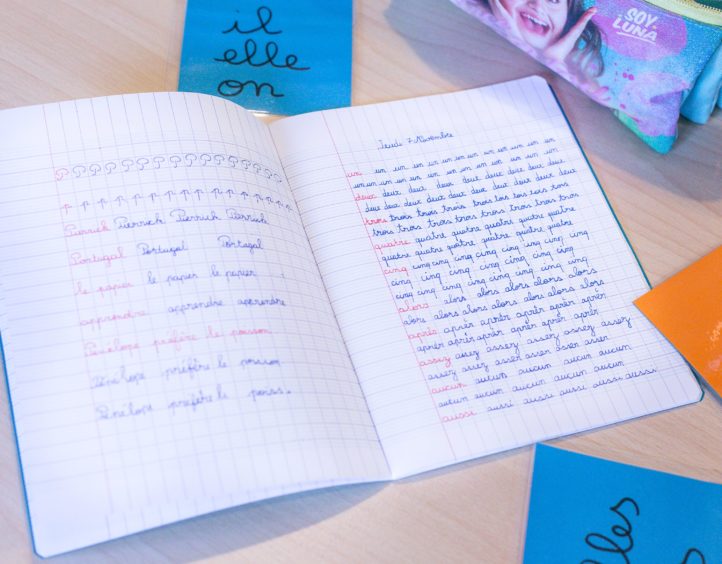 il
elle
on
SOY
LUNA
Pierrick Pierrick Pierrick Pierrick
Portugal Portugal Portugal
le papier le papier le papier
apprendre apprendre apprendre
Pénélope préfère le poisson
Pénélope préfère le poisson
Pénélope préfère le poiss.
Jeudi 7 Novembre
un un un un un un un un un un un un un
un un un un un un un un un un un un un
deux deux deux deux deux deux deux deux deux
deux deux deux deux deux deux deux deux deux
trois trois trois trois trois trois trois trois
trois trois trois trois trois trois trois trois
quatre quatre quatre quatre quatre quatre
quatre quatre quatre quatre quatre quatre
cinq cinq cinq cinq cinq cinq cinq cinq
cinq cinq cinq cinq cinq cinq cinq
cinq cinq cinq cinq cinq cinq cinq
alors alors alors alors alors alors
alors alors alors alors alors alors alors
après après après après après après
après après après après après après
assez assez assez assez assez assez
assez assez assez assez assez assez
aucun aucun aucun aucun aucun aucun
aucun aucun aucun aucun aucun aucun
aussi aussi aussi aussi aussi aussi
lles